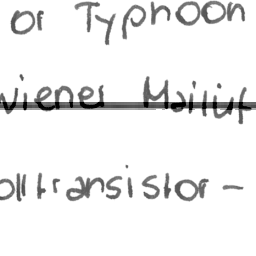 or Typhoon
wiener Mailüf
olltransistor-